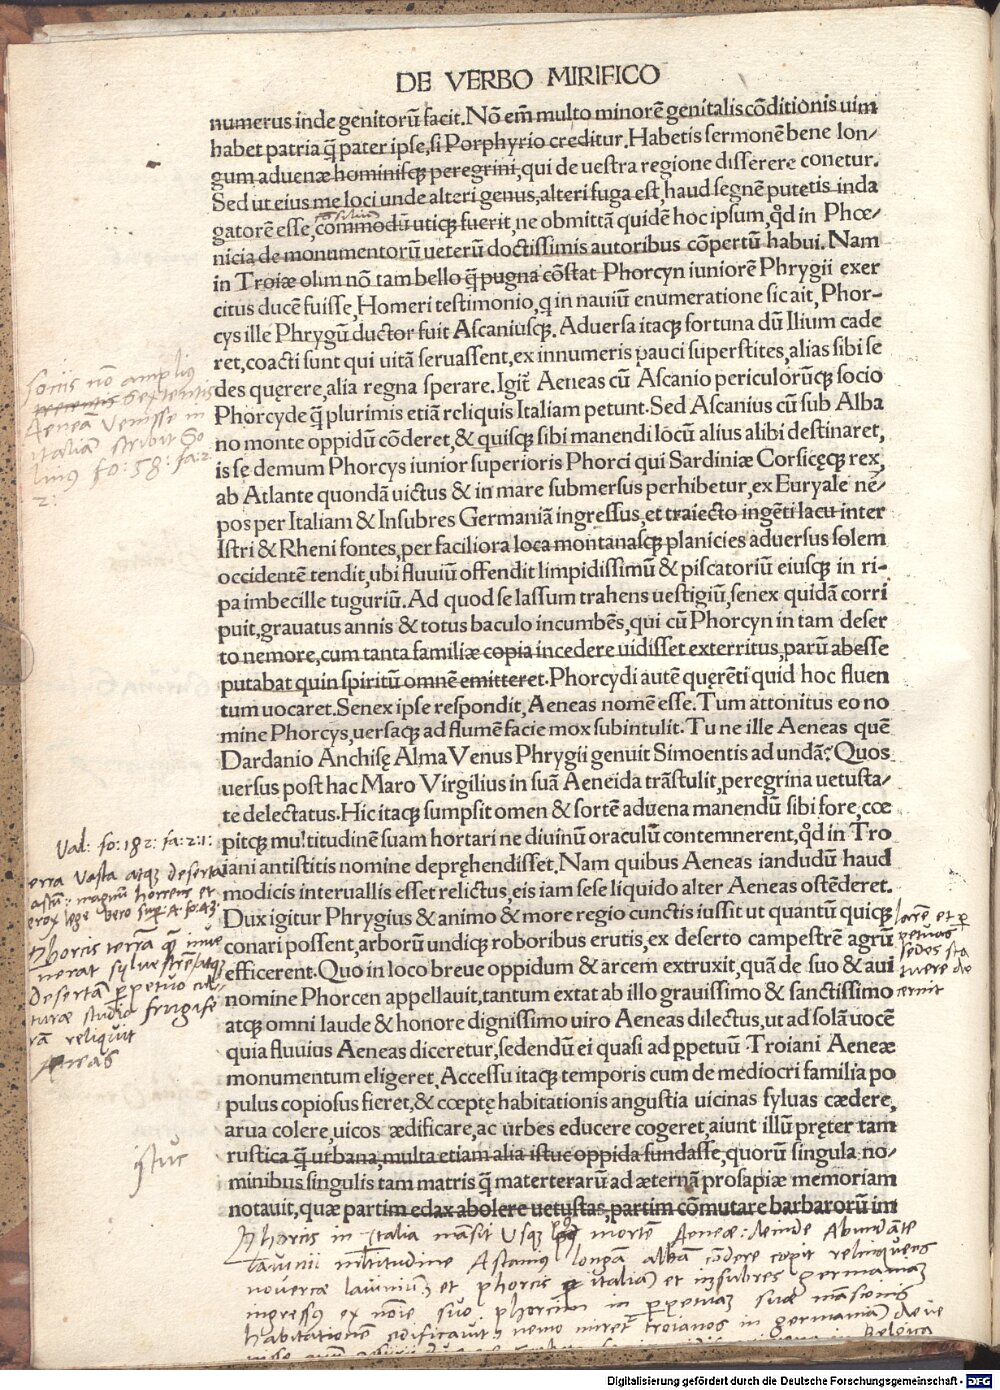 DE VERBO MIRIFICO
numerus inde genitorū facit. Nō em̄ multo minorē genitalis cōditionis uim
habet patria q̄ pater ipse, si Porphyrio creditur. Habetis sermonē bene lon-
gum aduenæ hominisq; peregrini, qui de uestra regione disserere conetur.
Sed ut eius me loci unde alteri genus, alteri fuga est, haud segnē putetis inda
gatorē esse, commodū utiq; fuerit, ne obmittā quidē hoc ipsum, qd in Phœ-
nicia de monumentorū ueterū doctissimis autoribus cōpertū habui. Nam
in Troiæ olim nō tam bello q̄ pugna cōstat Phorcyn iuniorē Phrygii exer
citus ducē fuisse, Homeri testimonio, q in nauiū enumeratione sic ait, Phor-
cys ille Phrygū ductor fuit Ascaniusq;. Aduersa itaq; fortuna dū Ilium cade
ret, coacti sunt qui uitā seruassent, ex innumeris pauci superstites, alias sibi se
des quęrere, alia regna sperare. Igit̄ Aeneas cū Ascanio periculorūq; socio
Phorcyde q̄ plurimis etiā reliquis Italiam petunt. Sed Ascanius cū sub Alba
no monte oppidū cōderet, & quisq; sibi manendi locū alius alibi destinaret,
is se demum Phorcys iunior superioris Phorci qui Sardiniæ Corsicęq; rex,
ab Atlante quondā uictus & in mare submersus perhibetur, ex Euryale nē-
pos per Italiam & Insubres Germaniā ingressus, et traiecto ingēti lacu inter
Istri & Rheni fontes, per faciliora loca montanasq; planicies aduersus solem
occidentē tendit, ubi fluuiū offendit limpidissimū & piscatoriū eiusq; in ri-
pa imbecille tuguriū. Ad quod se lassum trahens uestigiū, senex quidā corri
puit, grauatus annis & totus baculo incumbēs, qui cū Phorcyn in tam deser
to nemore, cum tanta familiæ copia incedere uidisset exterritus, parū abesse
putabat quin spiritū omnē emitteret. Phorcydi autē quęrēti quid hoc fluen
tum uocaret. Senex ipse respondit, Aeneas nomē esse. Tum attonitus eo no
mine Phorcys, uersaq; ad flumē facie mox subintulit. Tu ne ille Aeneas quē
Dardanio Anchisę Alma Venus Phrygii genuit Simoentis ad undā? Quos
uersus post hac Maro Virgilius in suā Aeneida trāstulit, peregrina uetusta-
te delectatus. Hic itaq; sumpsit omen & sortē aduena manendū sibi fore, cœ
pitq; multitudinē suam hortari ne diuinū oraculū contemnerent, qd in Tro
iani antistitis nomine depręhendisset. Nam quibus Aeneas iandudū haud
modicis interuallis esset relictus, eis iam sese liquido alter Aeneas ostēderet.
Dux igitur Phrygius & animo & more regio cunctis iussit ut quantū quicq;
conari possent, arborū undiq; roboribus erutis, ex deserto campestrē agrū
efficerent. Quo in loco breue oppidum & arcem extruxit, quā de suo & aui
nomine Phorcen appellauit, tantum extat ab illo grauissimo & sanctissimo
atq; omni laude & honore dignissimo uiro Aeneas dilectus, ut ad solā uocē
quia fluuius Aeneas diceretur, sedendū ei quasi ad ppetuū Troiani Aeneæ
monumentum eligeret. Accessu itaq; temporis cum de mediocri familia po
pulus copiosus fieret, & cœptę habitationis angustia uicinas syluas cædere,
arua colere, uicos ædificare, ac urbes educere cogeret, aiunt illū pręter tam
rustica q̄ urbana, multa etiam alia istuc oppida fundasse, quorū singula no-
minibus singulis tam matris q̄ materterarū ad æternā prosapiæ memoriam
notauit, quæ partim edax abolere uetustas, partim cōmutare barbarorū im
sociis nō amplius
sexcentis
Aeneā venisse in
italiam scribit So
linus fo: 58: fa: 2
2:
Val: fo: 182: fa: 2: 1:
erra vasta atq; deserta
Phorcis terrā q̄ inue
nerat sylvestrē atq;
desertā ppetuo cul-
turæ studio frugife
rā reliquit
larē et p
petuas
sedes sta
tuere de
cernit
istuc
Phorcis in Italia māsit usq; post mortē Aeneæ: deinde Abundāte
lavinii multitudine Ascanius longā albā cōdere cœpit relinquens
novercæ lavinium, et phorcis p italiā et insubres germaniam
ingressus ex noīe suo phorcim in ppetuam suæ māsionis
habitationem ædificavit, nemo miret troianos in germaniā deve
Digitalisierung gefördert durch die Deutsche Forschungsgemeinschaft - DFG